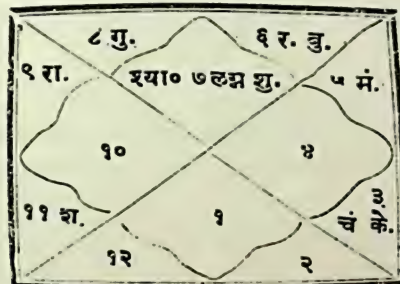 ८ गु.
६ र. बु.
९ रा.
श्या० ७ लग्न शु.
५ मं.
१०
४
११ श.
१
३
चं के.
१२
२